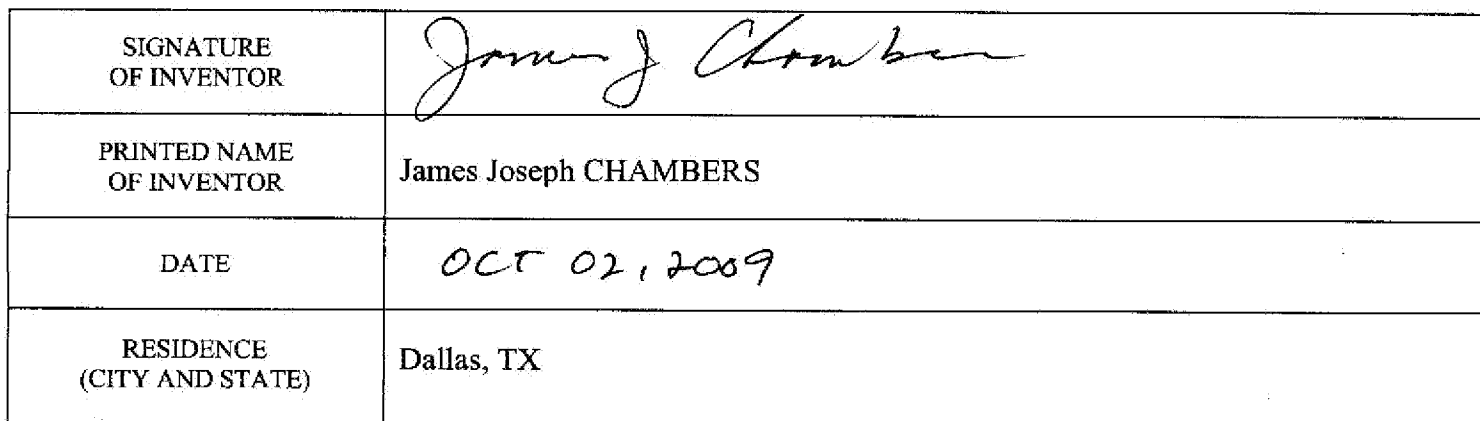 SIGNATURE
OF INVENTOR
James J Chambers
PRINTED NAME
OF INVENTOR
James Joseph CHAMBERS
DATE
OCT 02, 2009
RESIDENCE
(CITY AND STATE)
Dallas, TX